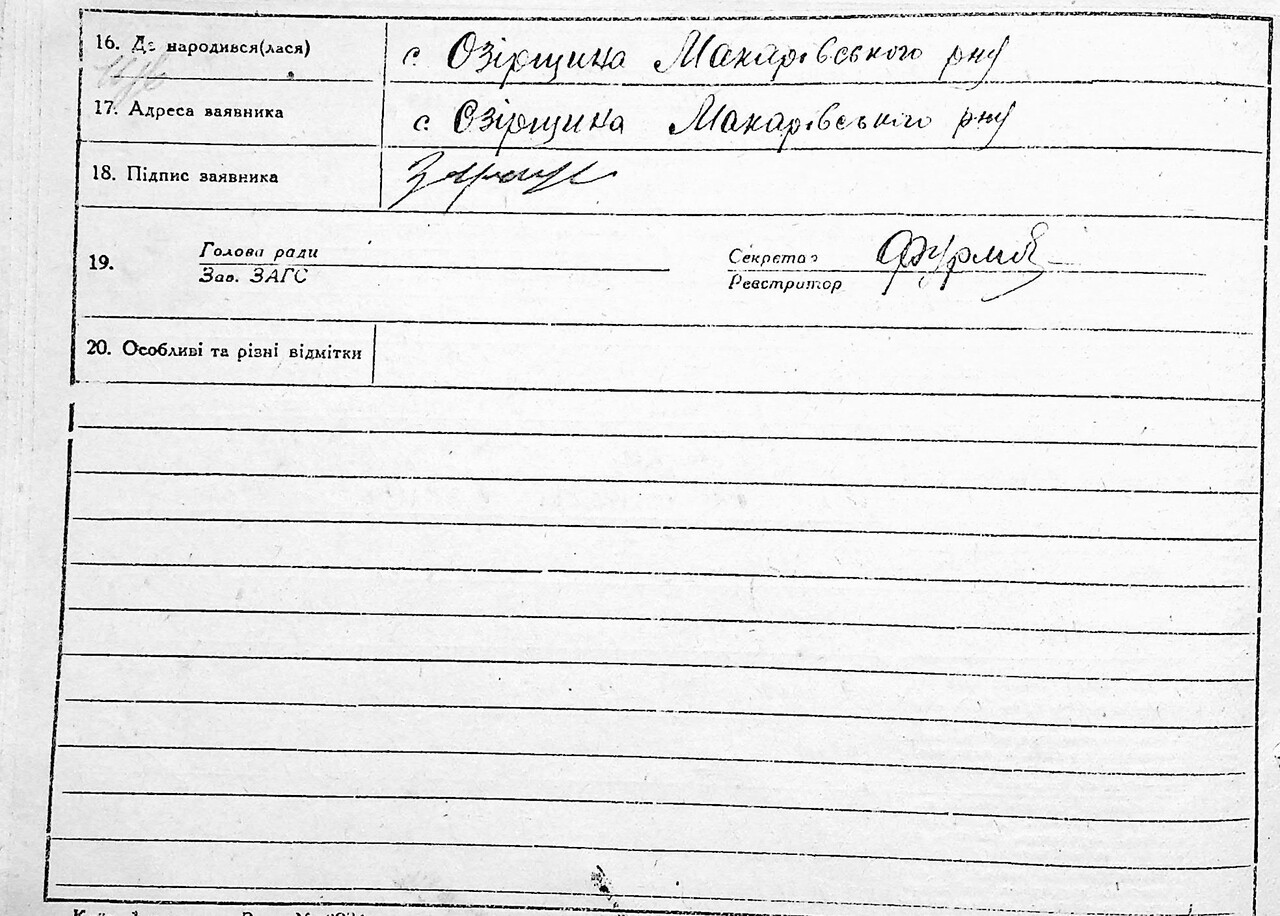 16. Де народився(лася) с. Озірщина Макарівського рну
17. Адреса заявника с. Озірщина Макарівського рну
18. Підпис заявника
19. Голова ради Секретар
Зав. ЗАГС Реєстратор
20. Особливі та різні відмітки